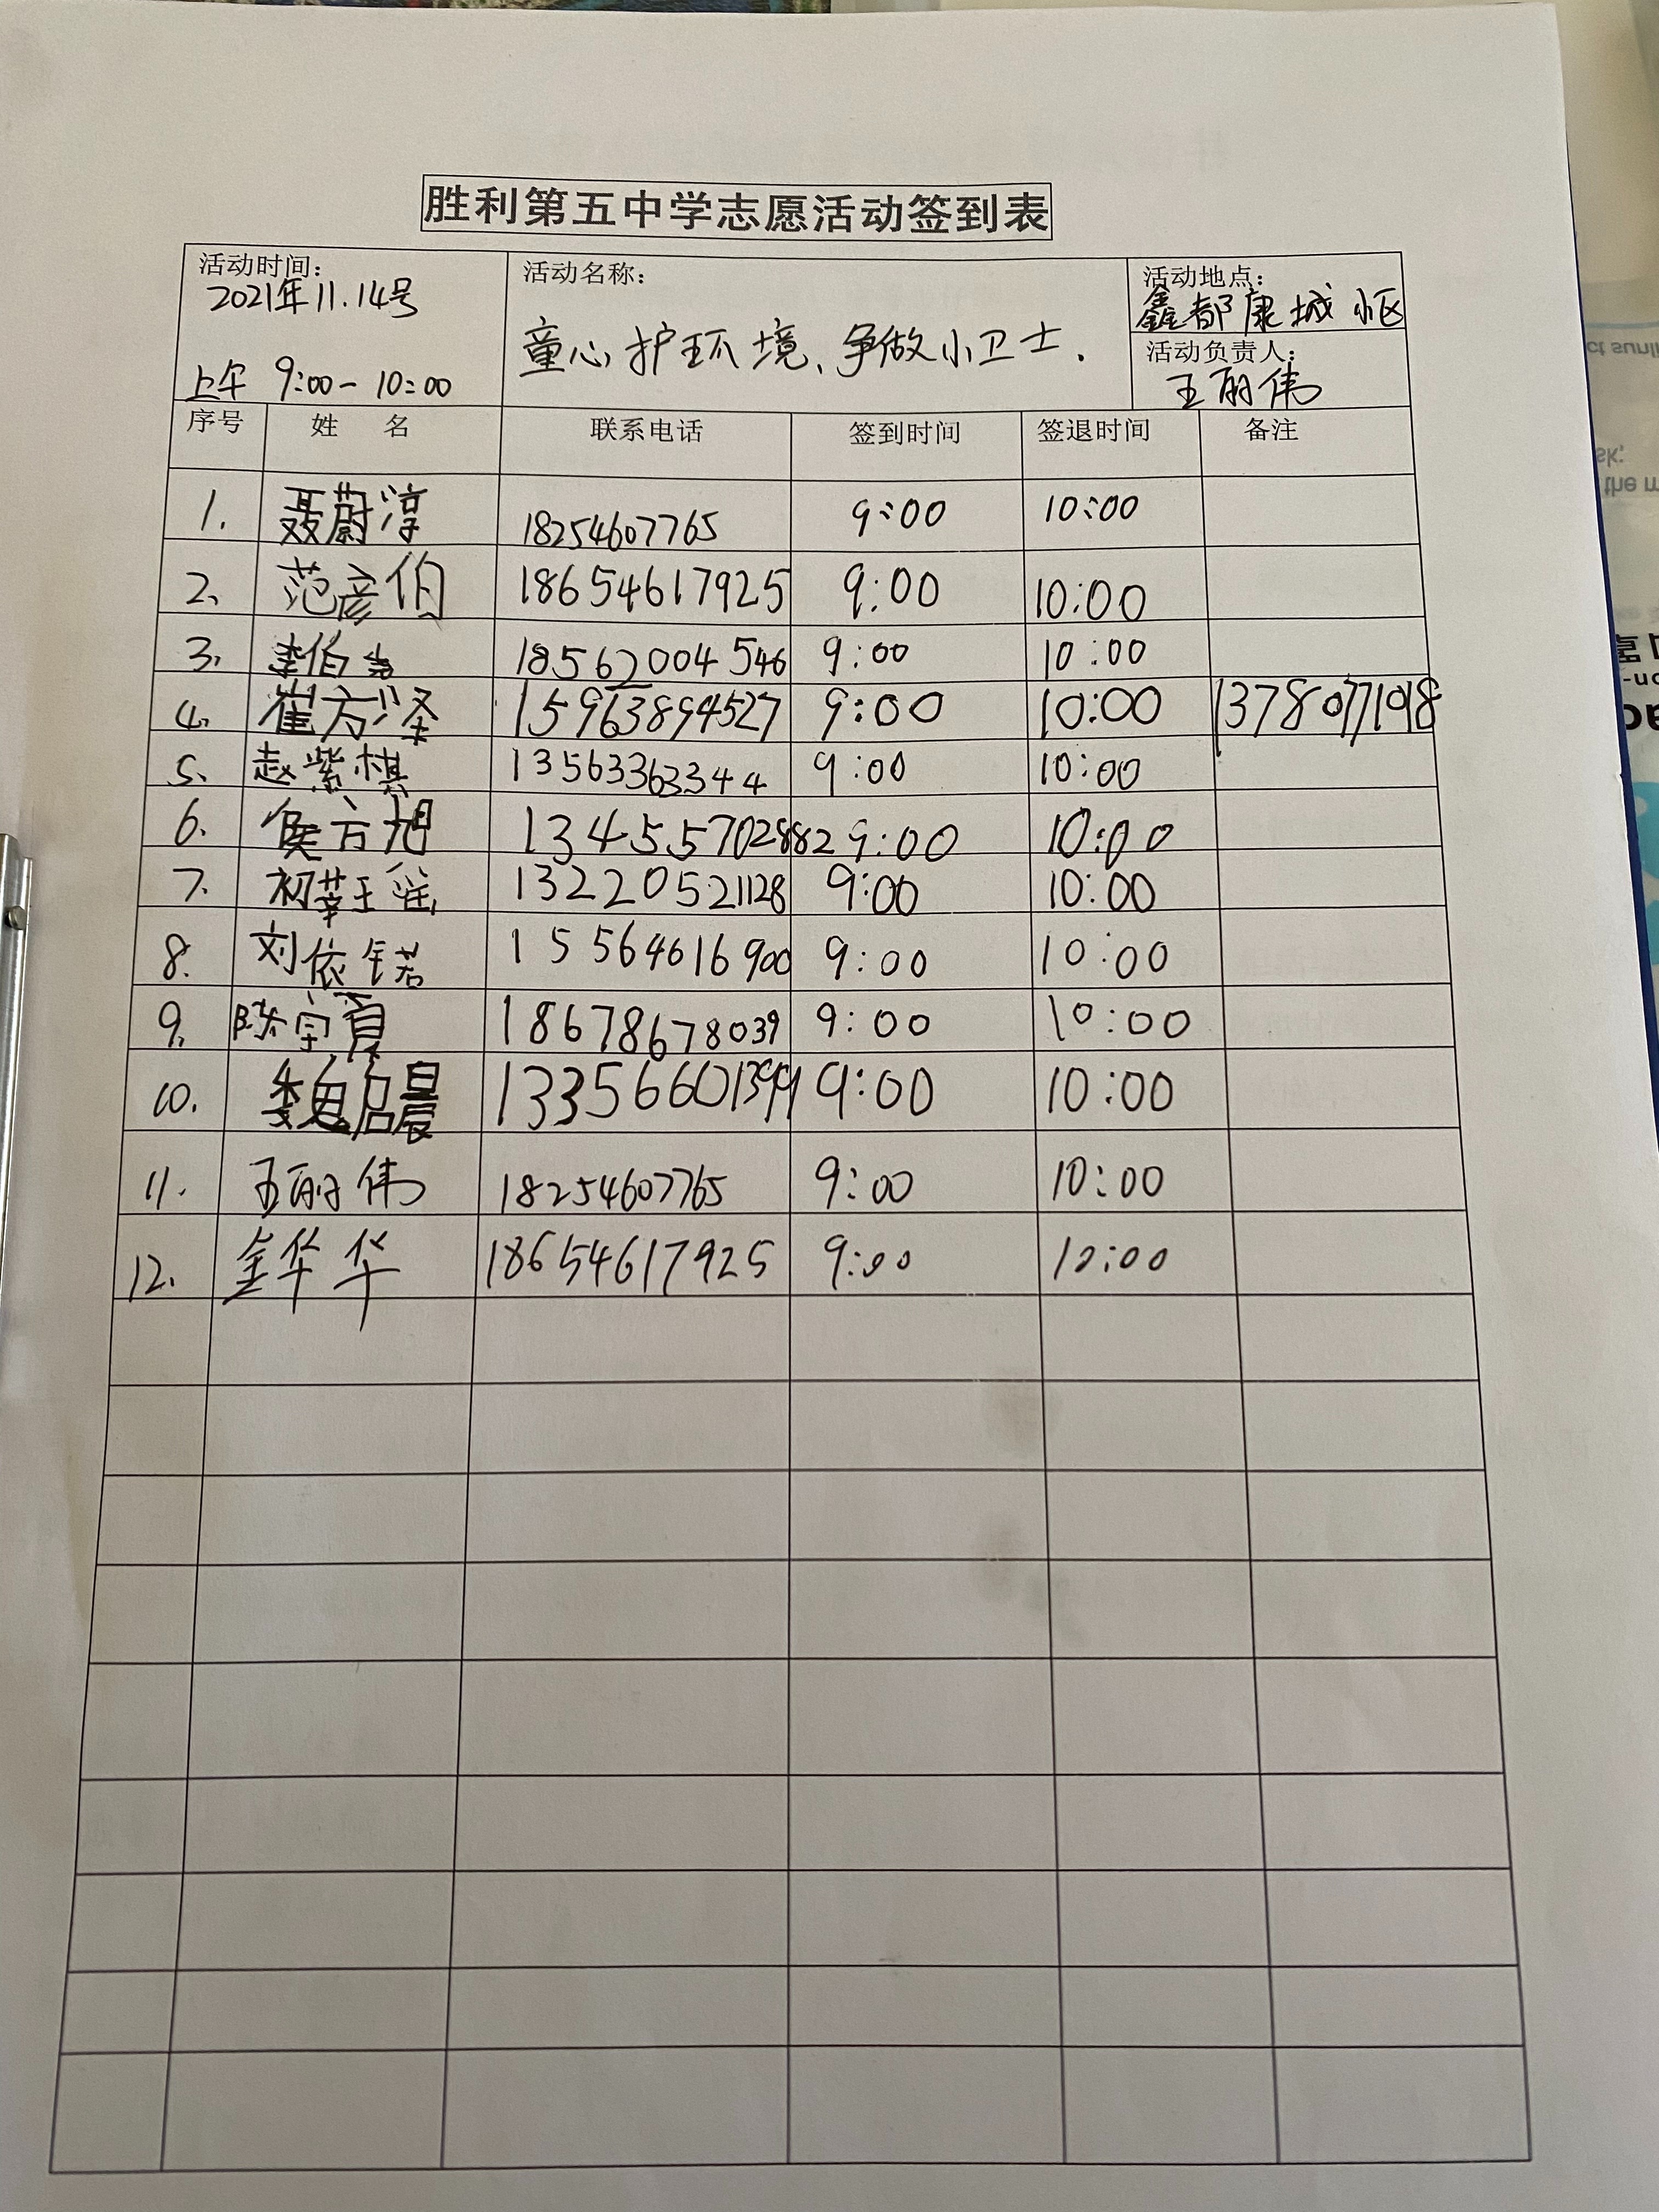 胜利第五中学志愿活动签到表
活动时间：
2021年11.14号
上午 9:00-10:00
活动名称：
童心护环境、争做小卫士.
活动地点：
鑫都康城小区
活动负责人：
王丽伟
序号 姓 名 联系电话 签到时间 签退时间 备注
1. 聂蔚淳 18254607765 9:00 10:00
2、 范彦伯 18654617925 9:00 10:00
3、 李伯 18562004546 9:00 10:00
4、 崔方泽 15963894527 9:00 10:00 13780771018
5、 赵紫棋 13563363344 9:00 10:00
6、 侯方旭 13455702882 9:00 10:00
7、 初莘瑶 13220521128 9:00 10:00
8. 刘依锘 15564616900 9:00 10:00
9. 陈宇 18678678039 9:00 10:00
10. 魏启晨 13356601399 9:00 10:00
11. 王丽伟 18254607765 9:00 10:00
12. 金华华 18654617925 9:00 10:00
ct sunli
sk:
the m